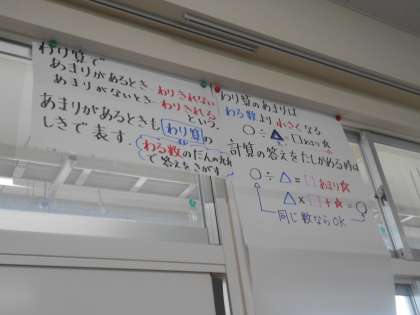 わり算で
あまりがあるとき わりきれない
あまりがないとき わりきれる
という。
あまりがあるときも わり算の
しきで表す。
わる数のだんの九九
で答えをさがす
わり算のあまりは
わる数より小さくなる
○÷△=□あまり☆
計算の答えをたしかめる時は
○÷△=□あまり☆
△×□+☆=○
同じ数ならOK